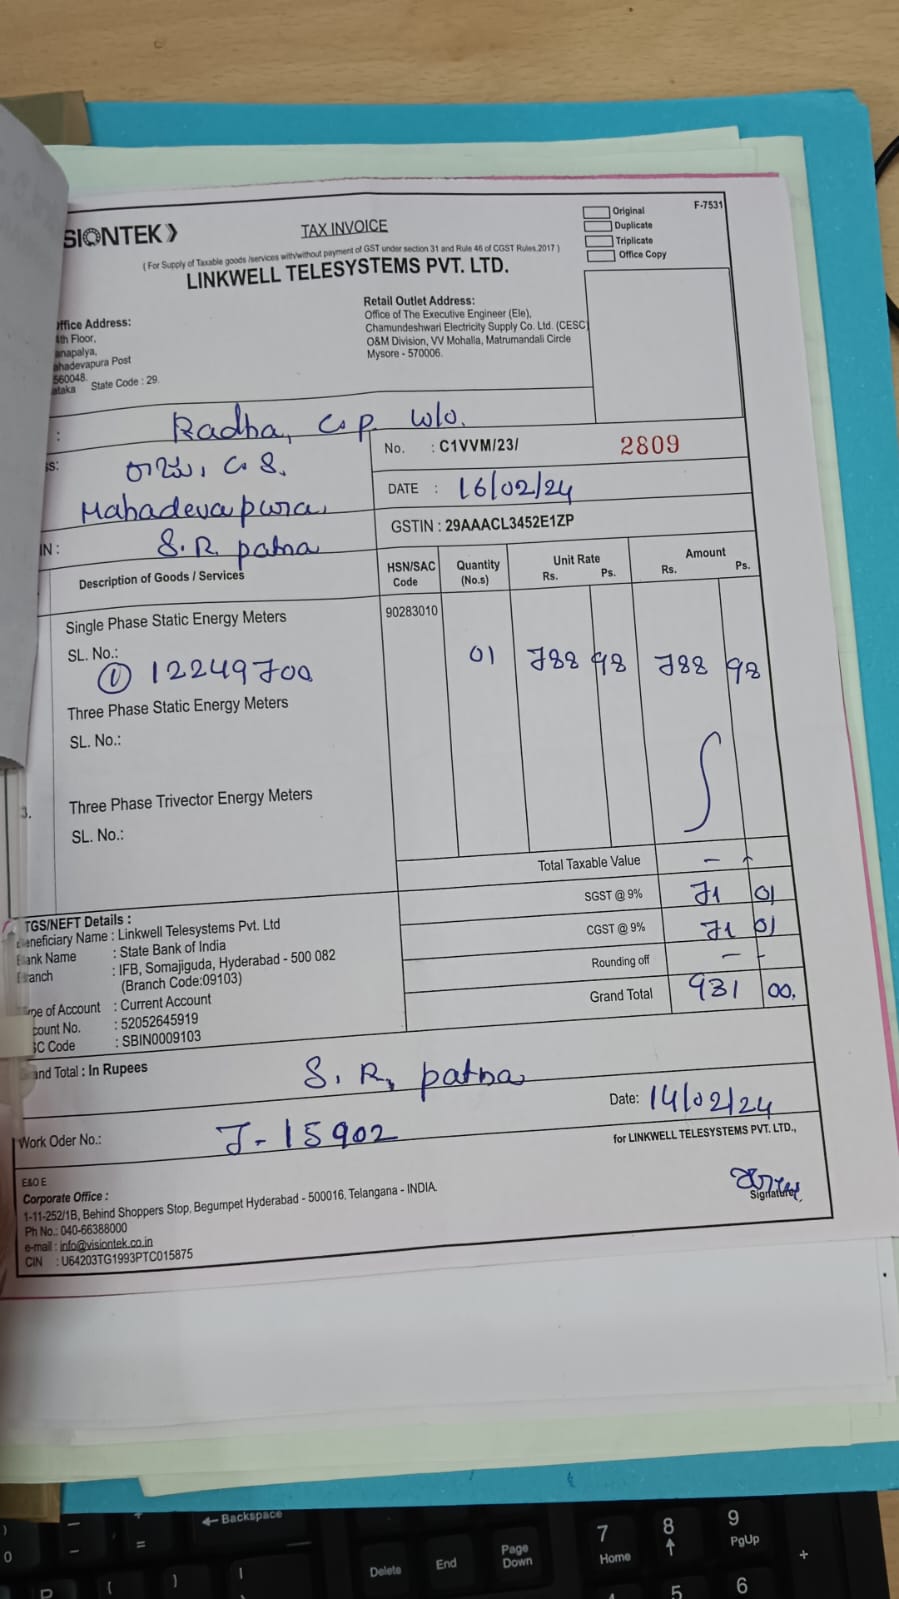 SIONTEK
TAX INVOICE
Original
F-7531
Duplicate
Triplicate
Office Copy
( For Supply of Taxable goods /services with/without payment of GST under section 31 and Rule 46 of CGST Rules,2017 )
LINKWELL TELESYSTEMS PVT. LTD.
ffice Address:
4th Floor,
anapalya,
ahadevapura Post
560048.
ataka State Code : 29.
Retail Outlet Address:
Office of The Executive Engineer (Ele),
Chamundeshwari Electricity Supply Co. Ltd. (CESC
O&M Division, VV Mohalla, Matrumandali Circle
Mysore - 570006.
: Radha, C.P. W/o.
ss: ರಾಜು, C.S.
Mahadevapura,
IN : S.R. patna
No. : C1VVM/23/ 2809
DATE : 16/02/24
GSTIN : 29AAACL3452E1ZP
Description of Goods / Services HSN/SAC Code Quantity (No.s) Unit Rate Rs. Ps. Amount Rs. Ps.
Single Phase Static Energy Meters 90283010
SL. No.: 01 788 98 788 98
① 12249700
Three Phase Static Energy Meters
SL. No.:
3. Three Phase Trivector Energy Meters
SL. No.:
Total Taxable Value - -
SGST @ 9% 71 01
CGST @ 9% 71 01
Rounding off - -
Grand Total 931 00.
TGS/NEFT Details :
eneficiary Name : Linkwell Telesystems Pvt. Ltd
ank Name : State Bank of India
ranch : IFB, Somajiguda, Hyderabad - 500 082
(Branch Code:09103)
pe of Account : Current Account
count No. : 52052645919
SC Code : SBIN0009103
and Total : In Rupees
S. R, patna
Date: 14/02/24
Work Oder No.: J-15902
for LINKWELL TELESYSTEMS PVT. LTD.,
Signature
E&O E
Corporate Office :
1-11-252/1B, Behind Shoppers Stop, Begumpet Hyderabad - 500016, Telangana - INDIA.
Ph No.: 040-66388000
e-mail : info@visiontek.co.in
CIN : U64203TG1993PTC015875
Backspace
Delete
End
Page Down
7 Home
8
9 PgUp
+
5
6